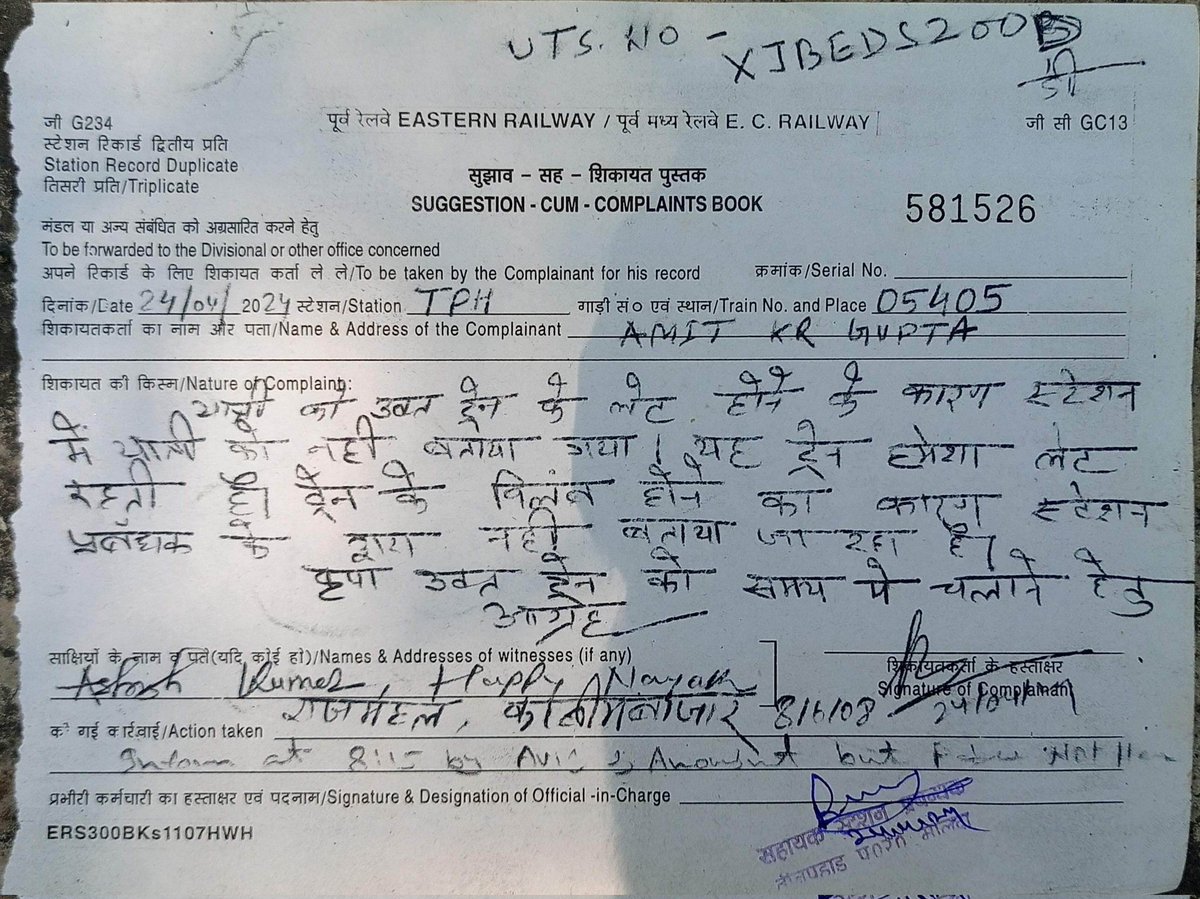 UTS. NO - XJBEDS200
जी G234
पूर्व रेलवे EASTERN RAILWAY / पूर्व मध्य रेलवे E. C. RAILWAY
जी सी GC13
स्टेशन रिकार्ड द्वितीय प्रति
Station Record Duplicate
तिसरी प्रति/Triplicate
सुझाव – सह – शिकायत पुस्तक
SUGGESTION - CUM - COMPLAINTS BOOK
581526
मंडल या अन्य संबंधित को अग्रसारित करने हेतु
To be forwarded to the Divisional or other office concerned
अपने रिकार्ड के लिए शिकायत कर्ता ले ले/To be taken by the Complainant for his record
क्रमांक/Serial No.
दिनांक/Date 24/04/2024 स्टेशन/Station TPH गाड़ी सं० एवं स्थान/Train No. and Place 05405
शिकायतकर्ता का नाम और पता/Name & Address of the Complainant AMIT KR GUPTA
शिकायत की किस्म/Nature of Complaint:
यात्री को उक्त ट्रेन के लेट होने के कारण स्टेशन
में यात्री को नही बताया गया। यह ट्रेन हमेशा लेट
रहती है। ट्रेन के विलंब होने का कारण स्टेशन
प्रबंधक के द्वारा नही बताया जा रहा है।
कृपा उक्त ट्रेन को समय पे चलाने हेतु
आग्रह
साक्षियों के नाम व पते(यदि कोई हो)/Names & Addresses of witnesses (if any)
शिकायतकर्ता के हस्ताक्षर
Signature of Complainant
Kumar, Happy Nayak
राजमहल,
24/04/
की गई कार्रवाई/Action taken
Inform at by but
प्रभारी कर्मचारी का हस्ताक्षर एवं पदनाम/Signature & Designation of Official -in-Charge
सहायक स्टेशन प्रबन्धक
ERS300BKs1107HWH